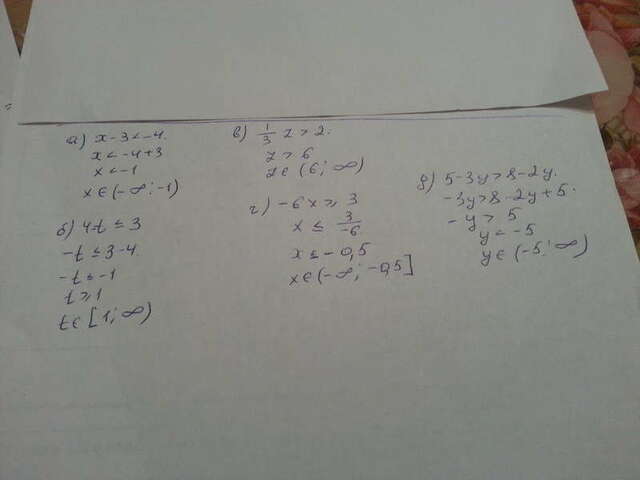 а) x-3<-4.
x<-4+3
x<-1
x∈(-∞;-1)
б) 4-t≤3
-t≤3-4
-t≤-1
t≥1
t∈[1;∞)
в) 1/3 z>2.
z>6
z∈(6;∞)
г) -6x≥3
x≤3/-6
x≤-0,5
x∈(-∞;-0,5]
д) 5-3y>8-2y.
-3y>8-2y+5.
-y>5
y<-5
y∈(-5;∞)